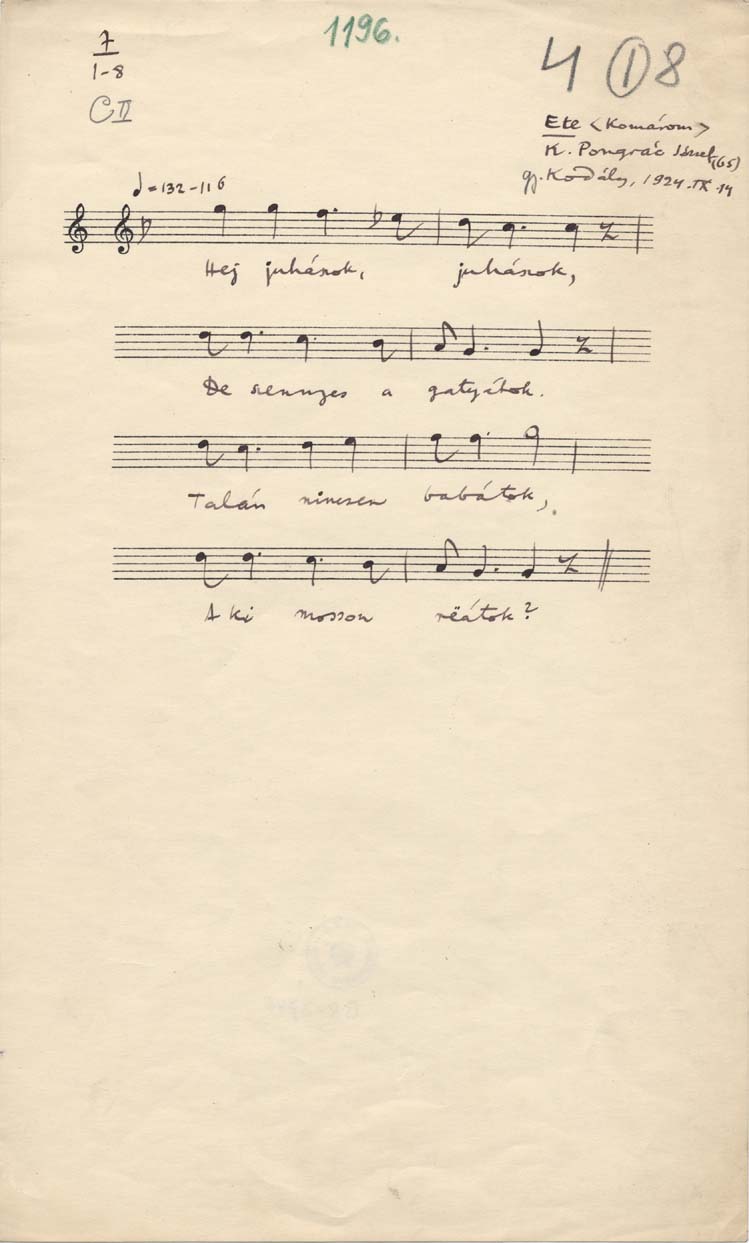 1196.
7
1-8
CII
4 I 8
Ete <Komárom>
K. Pongrác József (65)
gy. Kodály, 1924. IX. 14
=132-116
Hej juhászok, juhászok,
De szennyes a gatyátok.
Talán nincsen babátok,
Aki mosson rëátok?